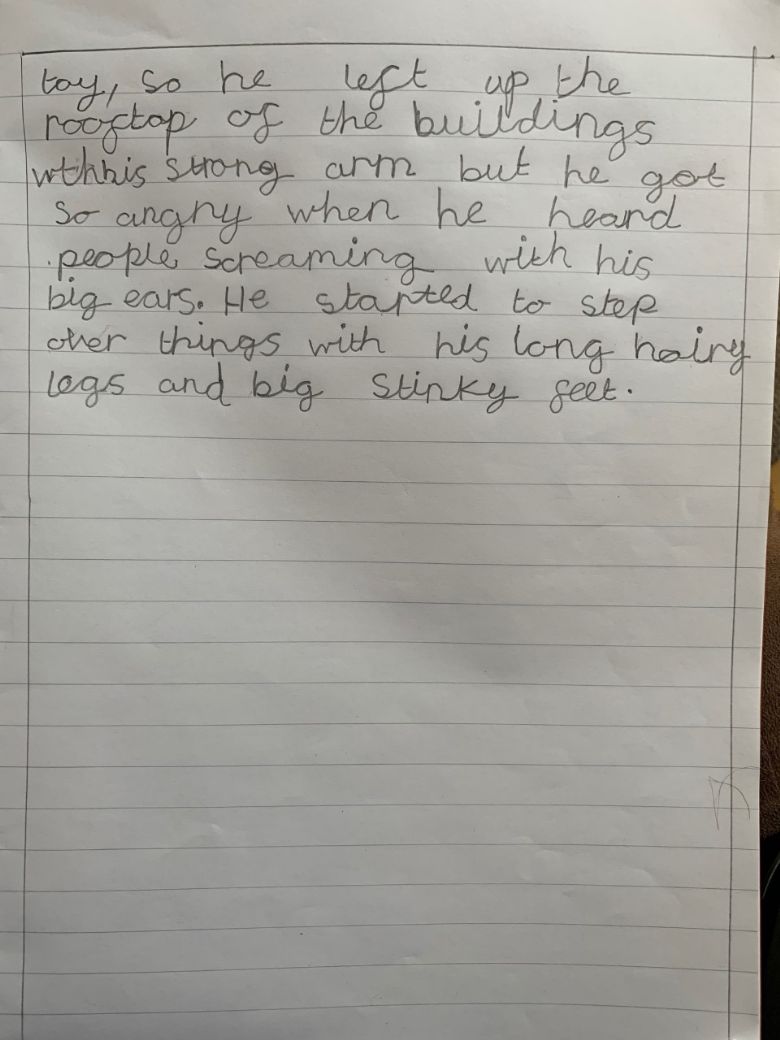 toy, so he left up the
rooftop of the buildings
wthhis strong arm but he got
so angry when he heard
people screaming with his
big ears. He started to step
over things with his long hairy
legs and big stinky feet.